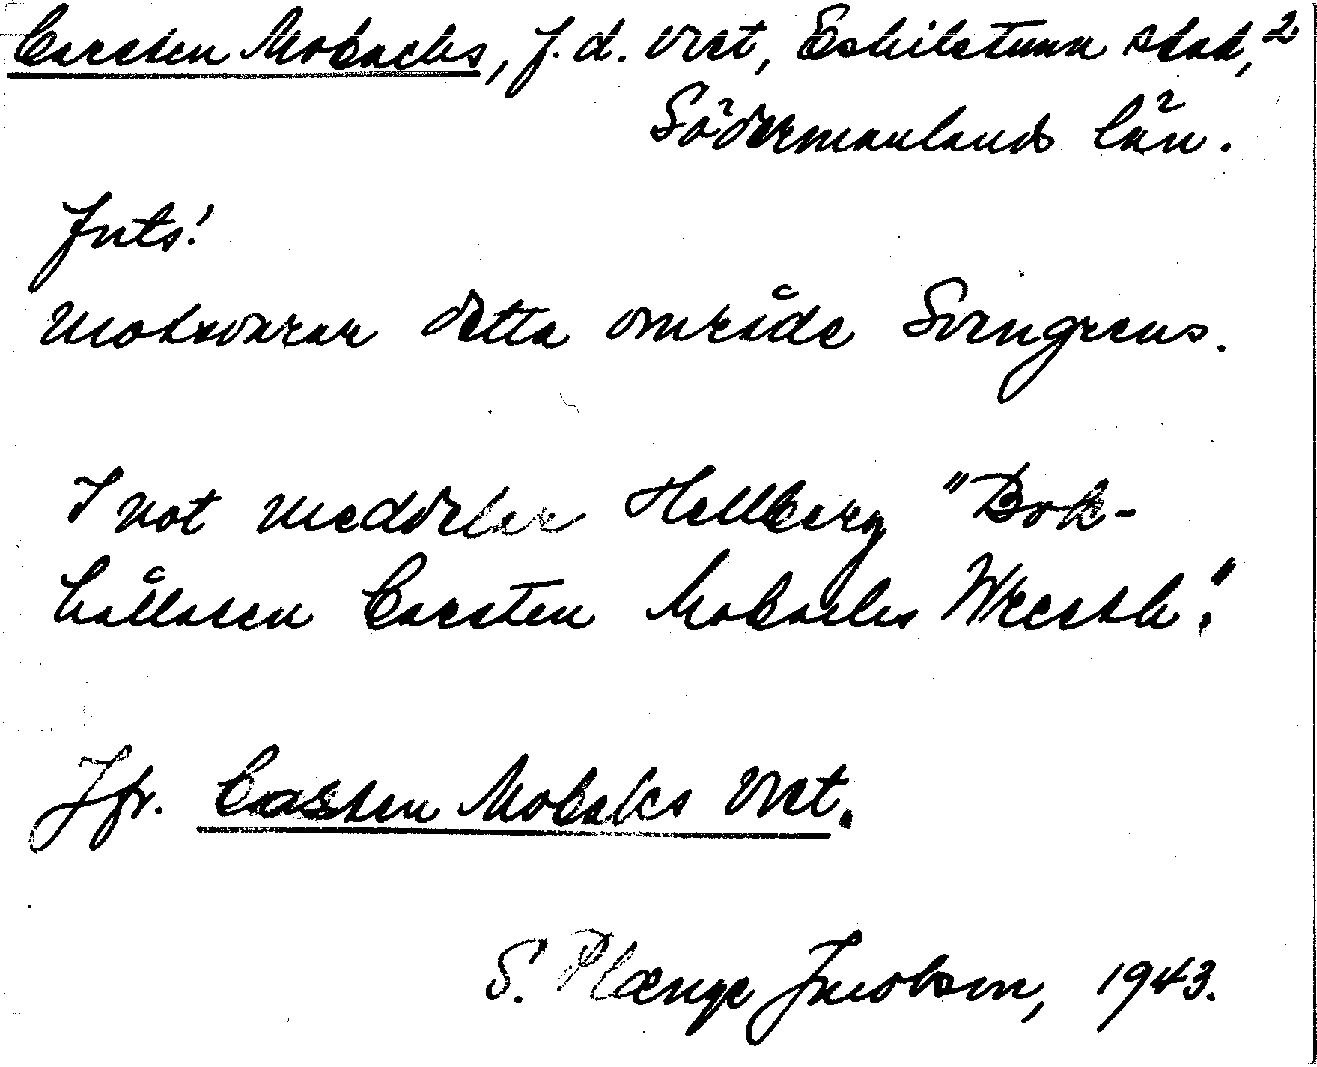 Carsten Mobacks, f. d. vret, Eskilstuna stad, 2
Södermanlands län.
motsvarar detta område Svengrens.
I not meddelar Hellberg "Bok-
hållaren Carsten Mobachs Wreetk."
Jfr. Casten Mobaks vret.
S. Plænge Jacobson, 1943.